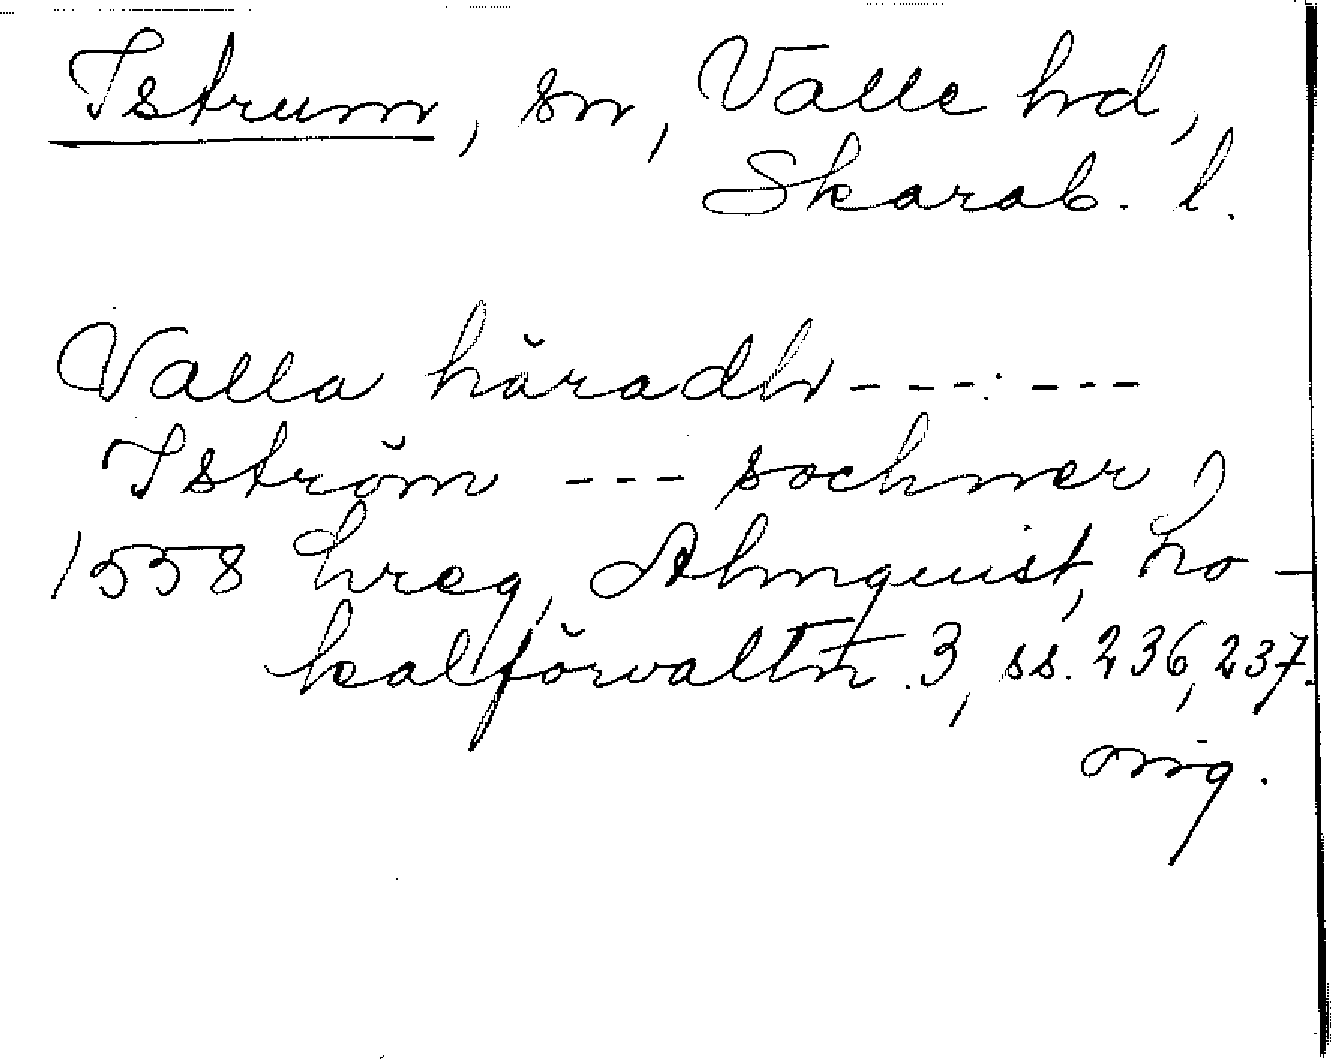 Istrum, sn, Valle hd,
Skarab. l.
Valla häradh ---:---
Iström --- sochner)
1558 hreg, Almquist, Lo-
kalförvaltn. 3, ss. 236, 237.
orig.